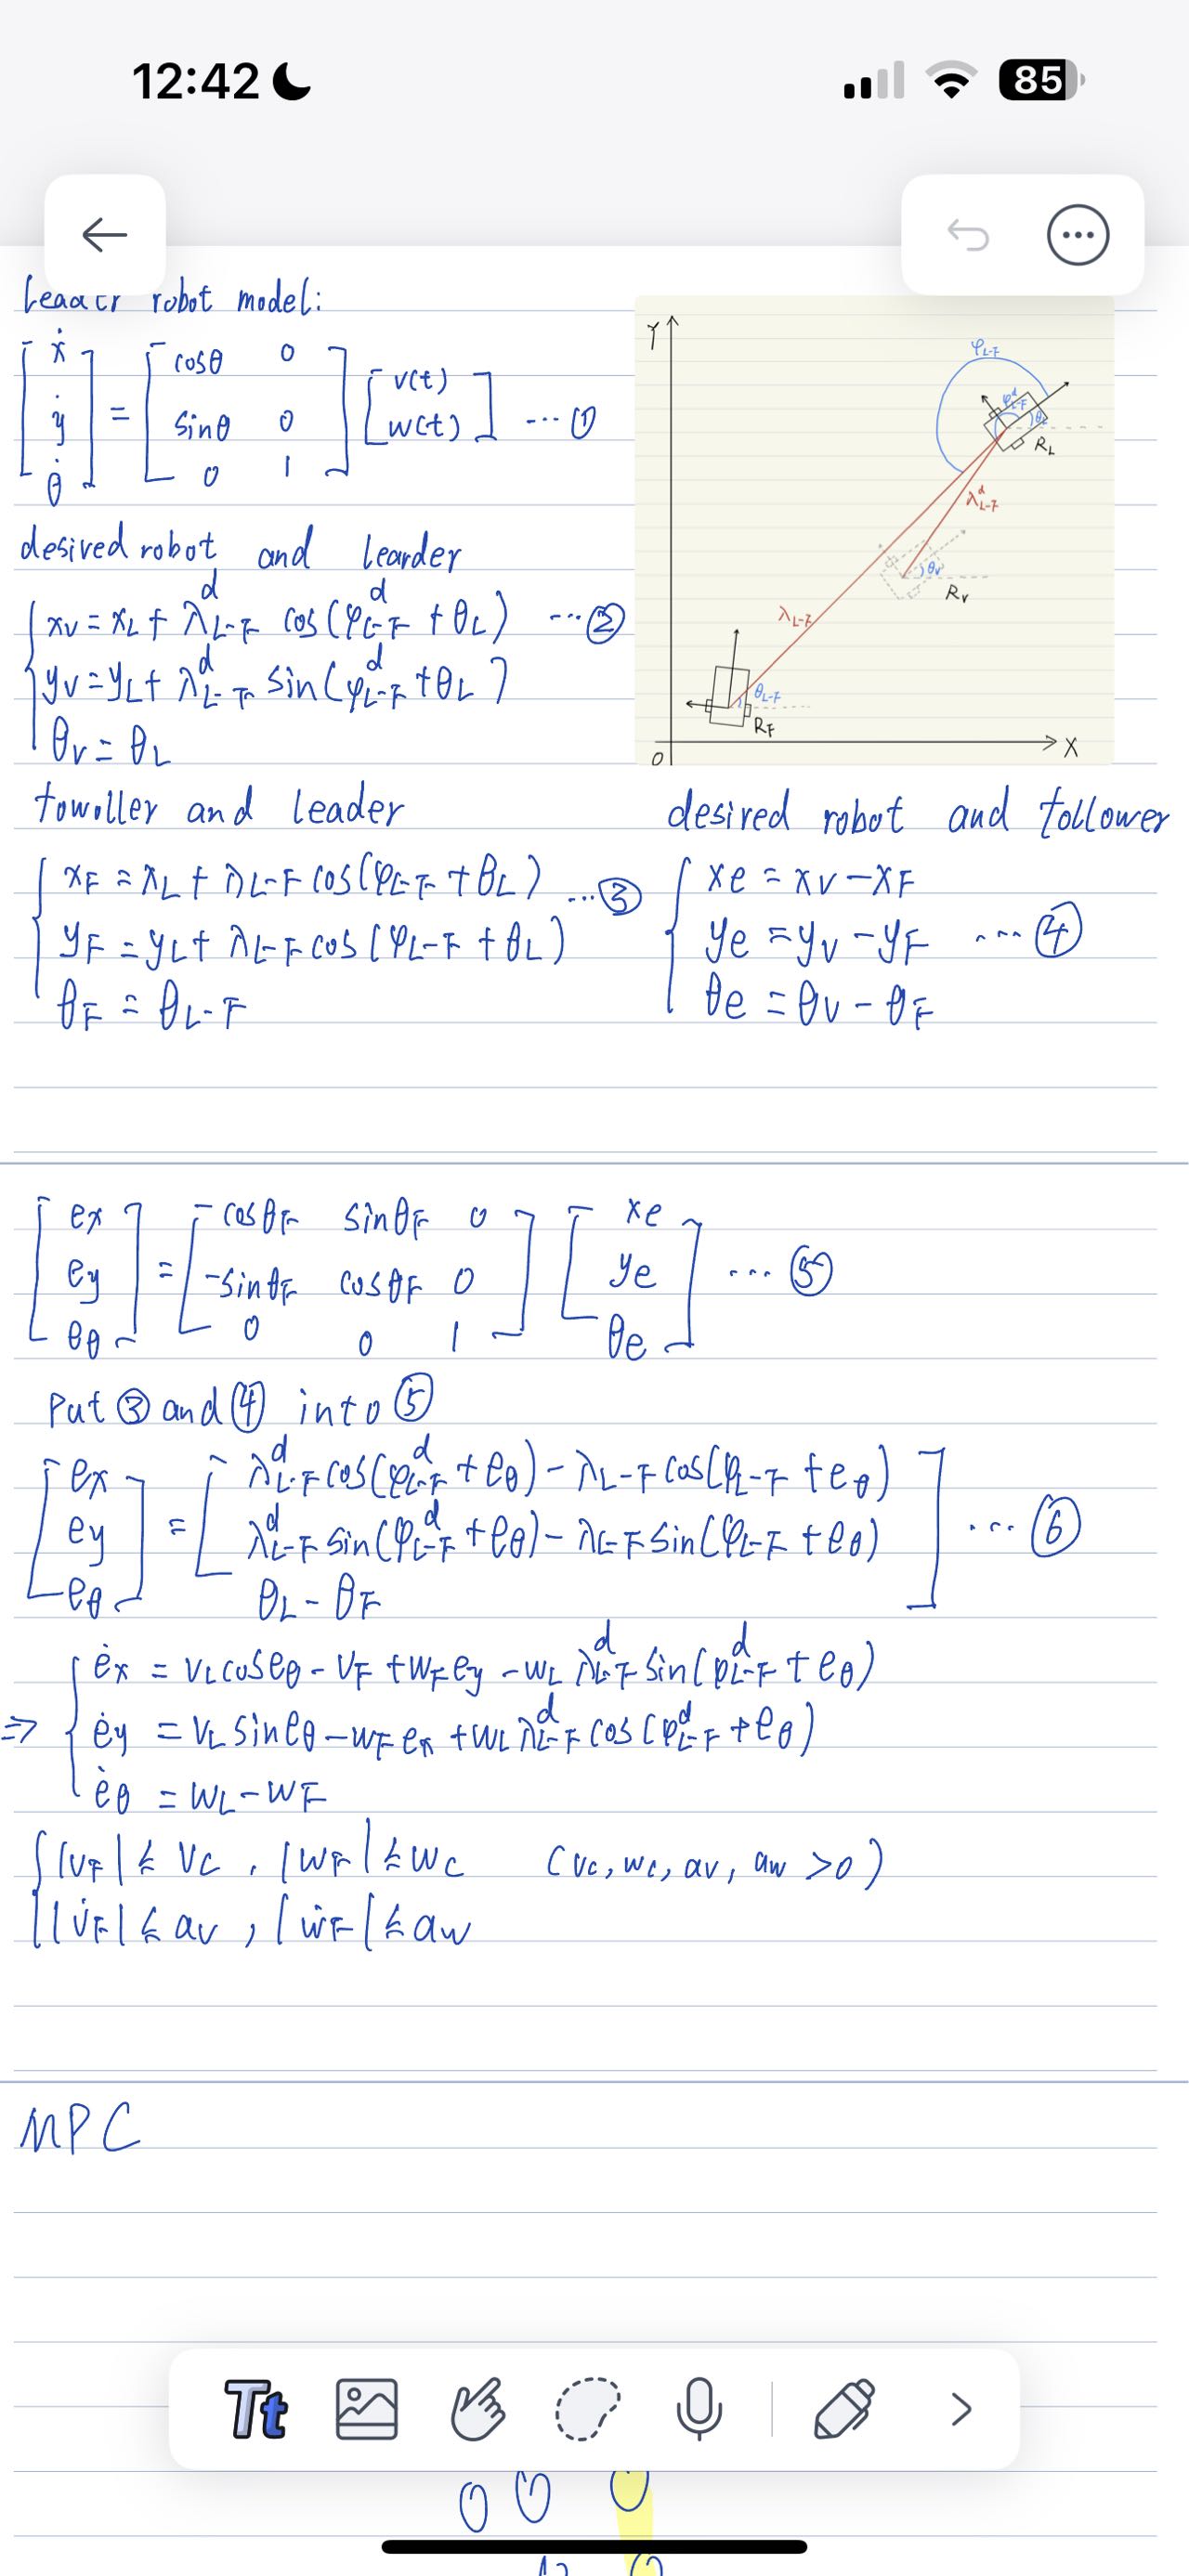 12:42
85
Leader robot model:
[ẋ ẏ θ̇] = [cosθ 0; sinθ 0; 0 1] [v(t) w(t)] ... ①
Y
φL-F
φᵈL-F
θL
RL
λᵈL-F
θv
Rv
λL-F
θL-F
RF
O
X
desired robot and learder
xv = xL + λᵈL-F cos(φᵈL-F + θL) ... ②
yv = yL + λᵈL-F sin(φᵈL-F + θL)
θv = θL
towoller and leader
xF = xL + λL-F cos(φL-F + θL) ... ③
yF = yL + λL-F cos(φL-F + θL)
θF = θL-F
desired robot and follower
xe = xv - xF
ye = yv - yF ... ④
θe = θv - θF
[ex ey eθ] = [cosθF sinθF 0; -sinθF cosθF 0; 0 0 1] [xe ye θe] ... ⑤
Put ③ and ④ into ⑤
[ex ey eθ] = [λᵈL-F cos(φᵈL-F + eθ) - λL-F cos(φL-F + eθ)
λᵈL-F sin(φᵈL-F + eθ) - λL-F sin(φL-F + eθ)
θL - θF] ... ⑥
⇒ ėx = vL cos eθ - vF + wF ey - wL λᵈL-F sin(φᵈL-F + eθ)
ėy = vL sin eθ - wF ex + wL λᵈL-F cos(φᵈL-F + eθ)
ėθ = wL - wF
|vF| ≤ vc, |wF| ≤ wc (vc, wc, av, aw > 0)
|v̇F| ≤ av, |ẇF| ≤ aw
MPC
Tt